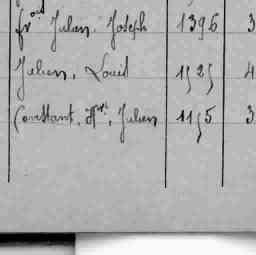 frois Julien, Joseph 1396 3
Julien, Louis 1525 4
Constant, Hri, Julien 1155 3